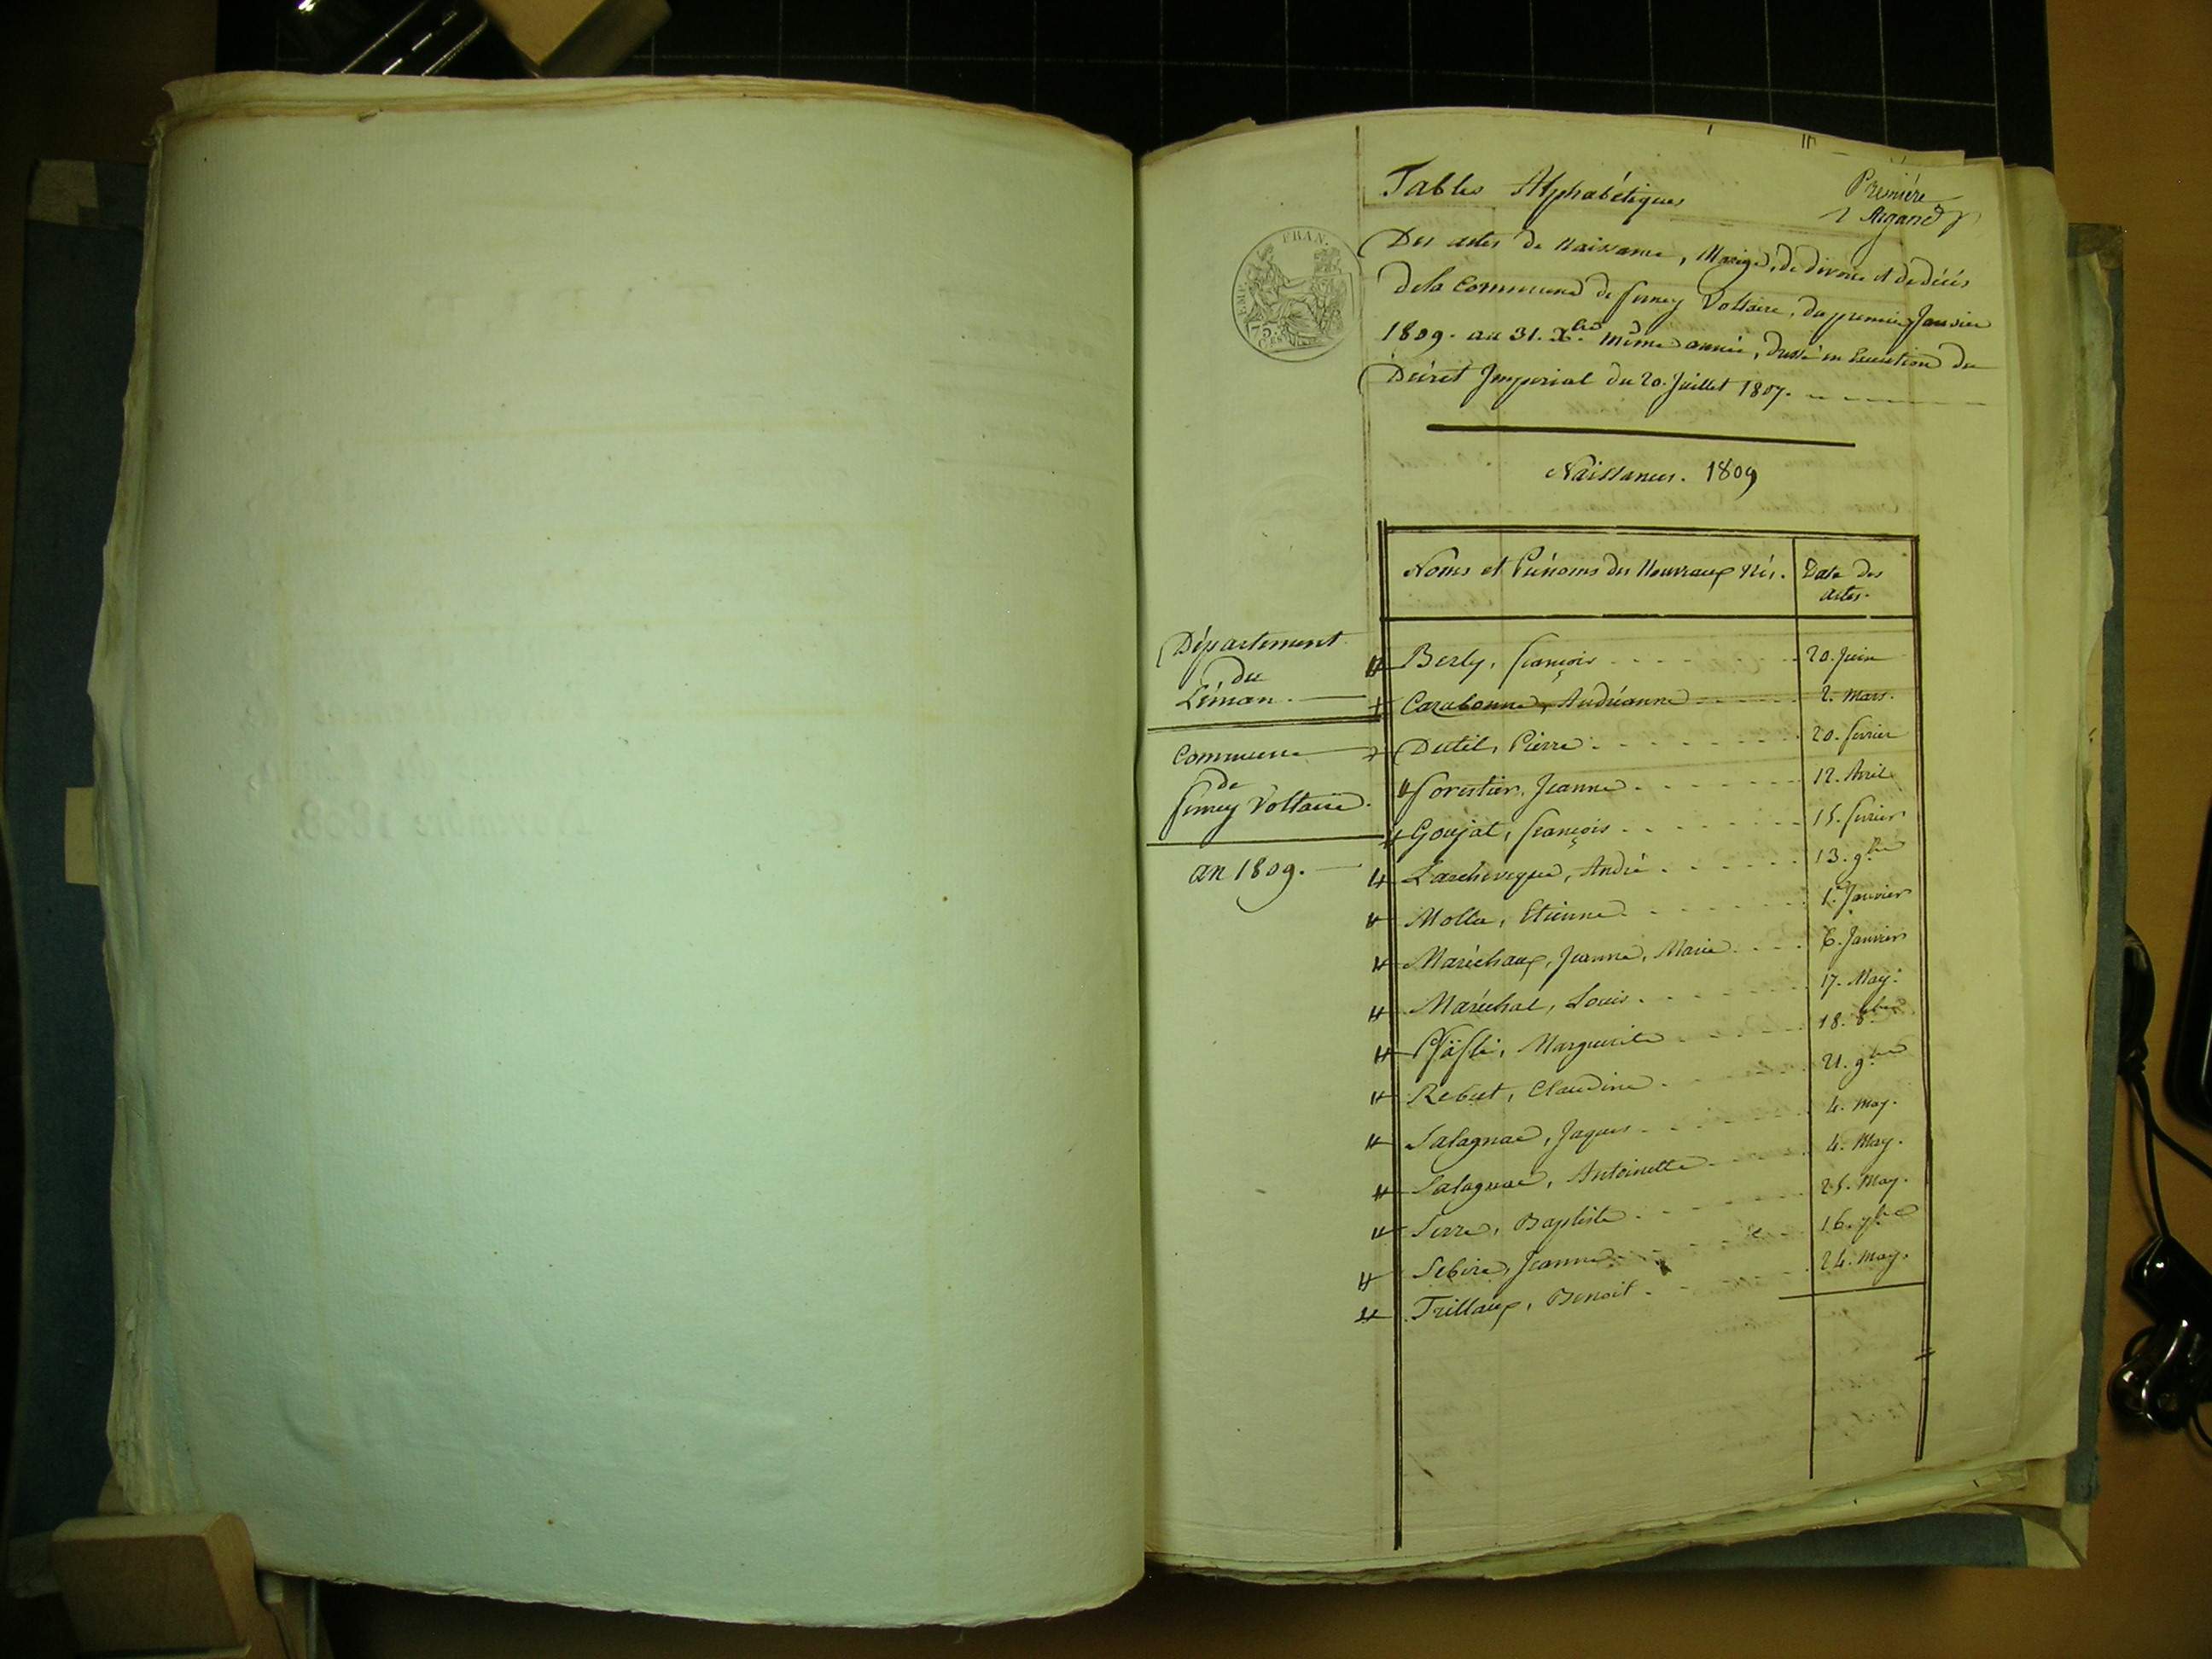 Tables Alphabétiques
Premiére
Argand
Des actes de Naissance, Marige, de divorce et de décés
de la Commune de ferney Voltaire, du premier Janvier
1809. au 31. Xbre même année, dressé en Execution du
Décret Imperial du 20. Juillet 1807.
EMP. FRAN.
75.
Naissances. 1809
Noms et Prénoms des Nouveaux Nés.
Date des
actes.
Département
du
Léman.
Commune
de
ferney Voltaire.
an 1809.
Berly, françois 20. Juin
Carabonne, Andréanne 2. Mars.
Dutil, Pierre 20. fevrier
forestier, Jeanne 12. Avril
Goujat, françois 15. fevrier
Larcheveque, André 13. 9bre
Molla, Etienne 1er Janvier
Maréchaux, Jeanne, Marie 6. Janvier
Maréchal, Louis 17. May.
Marguerite 18. 8bre
Rebut, Claudine 21. 9bre
Salagnac, Jaques 4. May.
Salagnac, Antoinette 4. May.
Serre, Baptiste 25. May.
Sebire, Jeanne 16. 7bre
Trillaux, Benoit 24. May.